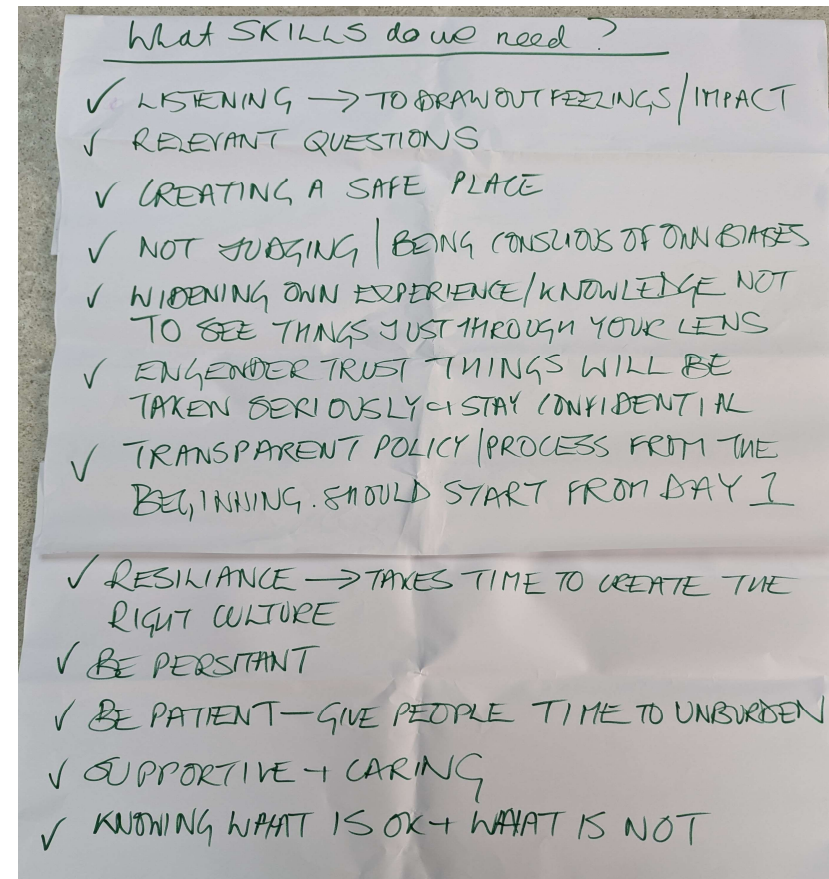 What SKILLS do we need?
✓ LISTENING → TO DRAW OUT FEELINGS/IMPACT
✓ RELEVANT QUESTIONS
✓ CREATING A SAFE PLACE
✓ NOT JUDGING | BEING CONSCIOUS OF OWN BIASES
✓ WIDENING OWN EXPERIENCE/KNOWLEDGE NOT
TO SEE THINGS JUST THROUGH YOUR LENS
✓ ENGENDER TRUST THINGS WILL BE
TAKEN SERIOUSLY + STAY CONFIDENTIAL
✓ TRANSPARENT POLICY/PROCESS FROM THE
BEGINNING. SHOULD START FROM DAY 1
✓ RESILIANCE → TAKES TIME TO CREATE THE
RIGHT CULTURE
✓ BE PERSITANT
✓ BE PATIENT — GIVE PEOPLE TIME TO UNBURDEN
✓ SUPPORTIVE + CARING
✓ KNOWING WHAT IS OK + WHAT IS NOT